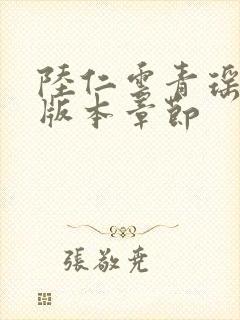 陸仁雲青瑶
版本章節
張敬堯